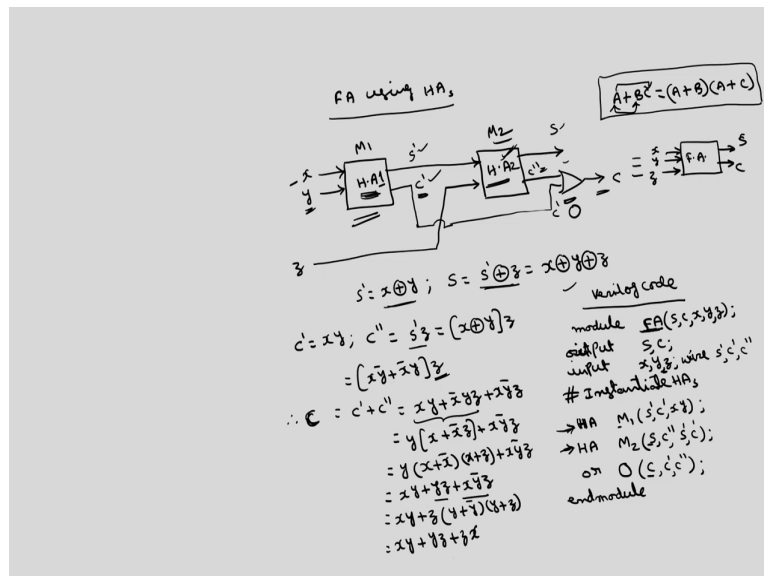 FA using HAs
A+BC=(A+B)(A+C)
M1
M2
x
y
H.A1
s'
c'
H.A2
S
c''
c'
O
C
z
=
x
y
z
F.A.
S
C
s'=x⊕y; S=s'⊕z=x⊕y⊕z
c'=xy; c''=s'z=[x⊕y]z
=[xȳ+x̄y]z
∴ C = c'+c''=xy+x̄yz+xȳz
=y[x+x̄z]+xȳz
=y(x+x̄)(x+z)+xȳz
=xy+yz+xȳz
=xy+z(y+ȳ)(y+z)
=xy+yz+zx
Verilog code
module FA(S,C,x,y,z);
output S,C;
input x,y,z; wire s',c',c''
# Instantiate HAs
→HA M1(s',c',xy);
→HA M2(S,c'',s',c');
or O(C,c',c'');
endmodule